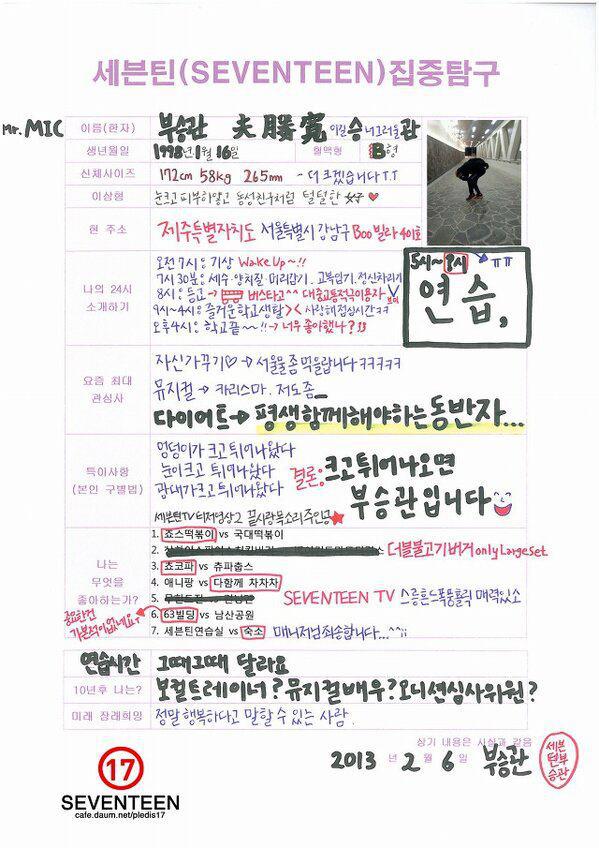 세븐틴(SEVENTEEN)집중탐구
Mr.MIC
이름(한자) 부승관 夫勝寬 이길 승 너그러울 관
생년월일 1998년 1월 16일 혈액형 B형
신체사이즈 172cm 58kg 265mm - 더 크겠습니다 T.T
이상형 눈크고 피부하얗고 동성친구처럼 털털한 女子 ♥
현 주소 제주특별자치도 서울특별시 강남구 Boo 빌라 401호
나의 24시 소개하기
오전 7시 : 기상 Wake Up~!!
7시 30분 : 세수·양치질·머리감기, 교복입기, 정신차리기
8시 : 등교 → 버스타고^^ 대중교통적극이용자
9시~4시 : 즐거운 학교생활 >< 사랑해 점심시간ㅋㅋ
오후 4시 : 학교끝~!! → 너무 좋아했나?
5시~8시 ㅠㅠ
연습,
요즘 최대 관심사
자신가꾸기♡ → 서울물좀 먹을랍니다 ㅋㅋㅋㅋㅋ
뮤지컬 → 카리스마. 저도 좀
다이어트 → 평생함께해야하는동반자...
특이사항 (본인 구별법)
엉덩이가 크고 튀어나왔다
눈이크고 튀어나왔다
광대가크고튀어나왔다
결론: 크고튀어나오면 부승관입니다
세븐틴TV티저영상2 끝사랑목소리주인공★
나는 무엇을 좋아하는가?
1. 죠스떡볶이 vs 국대떡볶이
2. 더블불고기버거 only Large set
3. 쵸코파 vs 츄파춥스
4. 애니팡 vs 다함께 차차차
5. SEVENTEEN TV
6. 63빌딩 vs 남산공원
7. 세븐틴연습실 vs 숙소 매니저님죄송합니다..^^;;
연습시간 그때그때 달라요
10년후 나는? 보컬트레이너? 뮤지컬배우? 오디션심사위원?
미래 장래희망 정말 행복하다고 말할 수 있는 사람.
상기 내용은 사실과 같음
2013 년 2 월 6 일 부승관
세븐틴부승관
17
SEVENTEEN
cafe.daum.net/pledis17